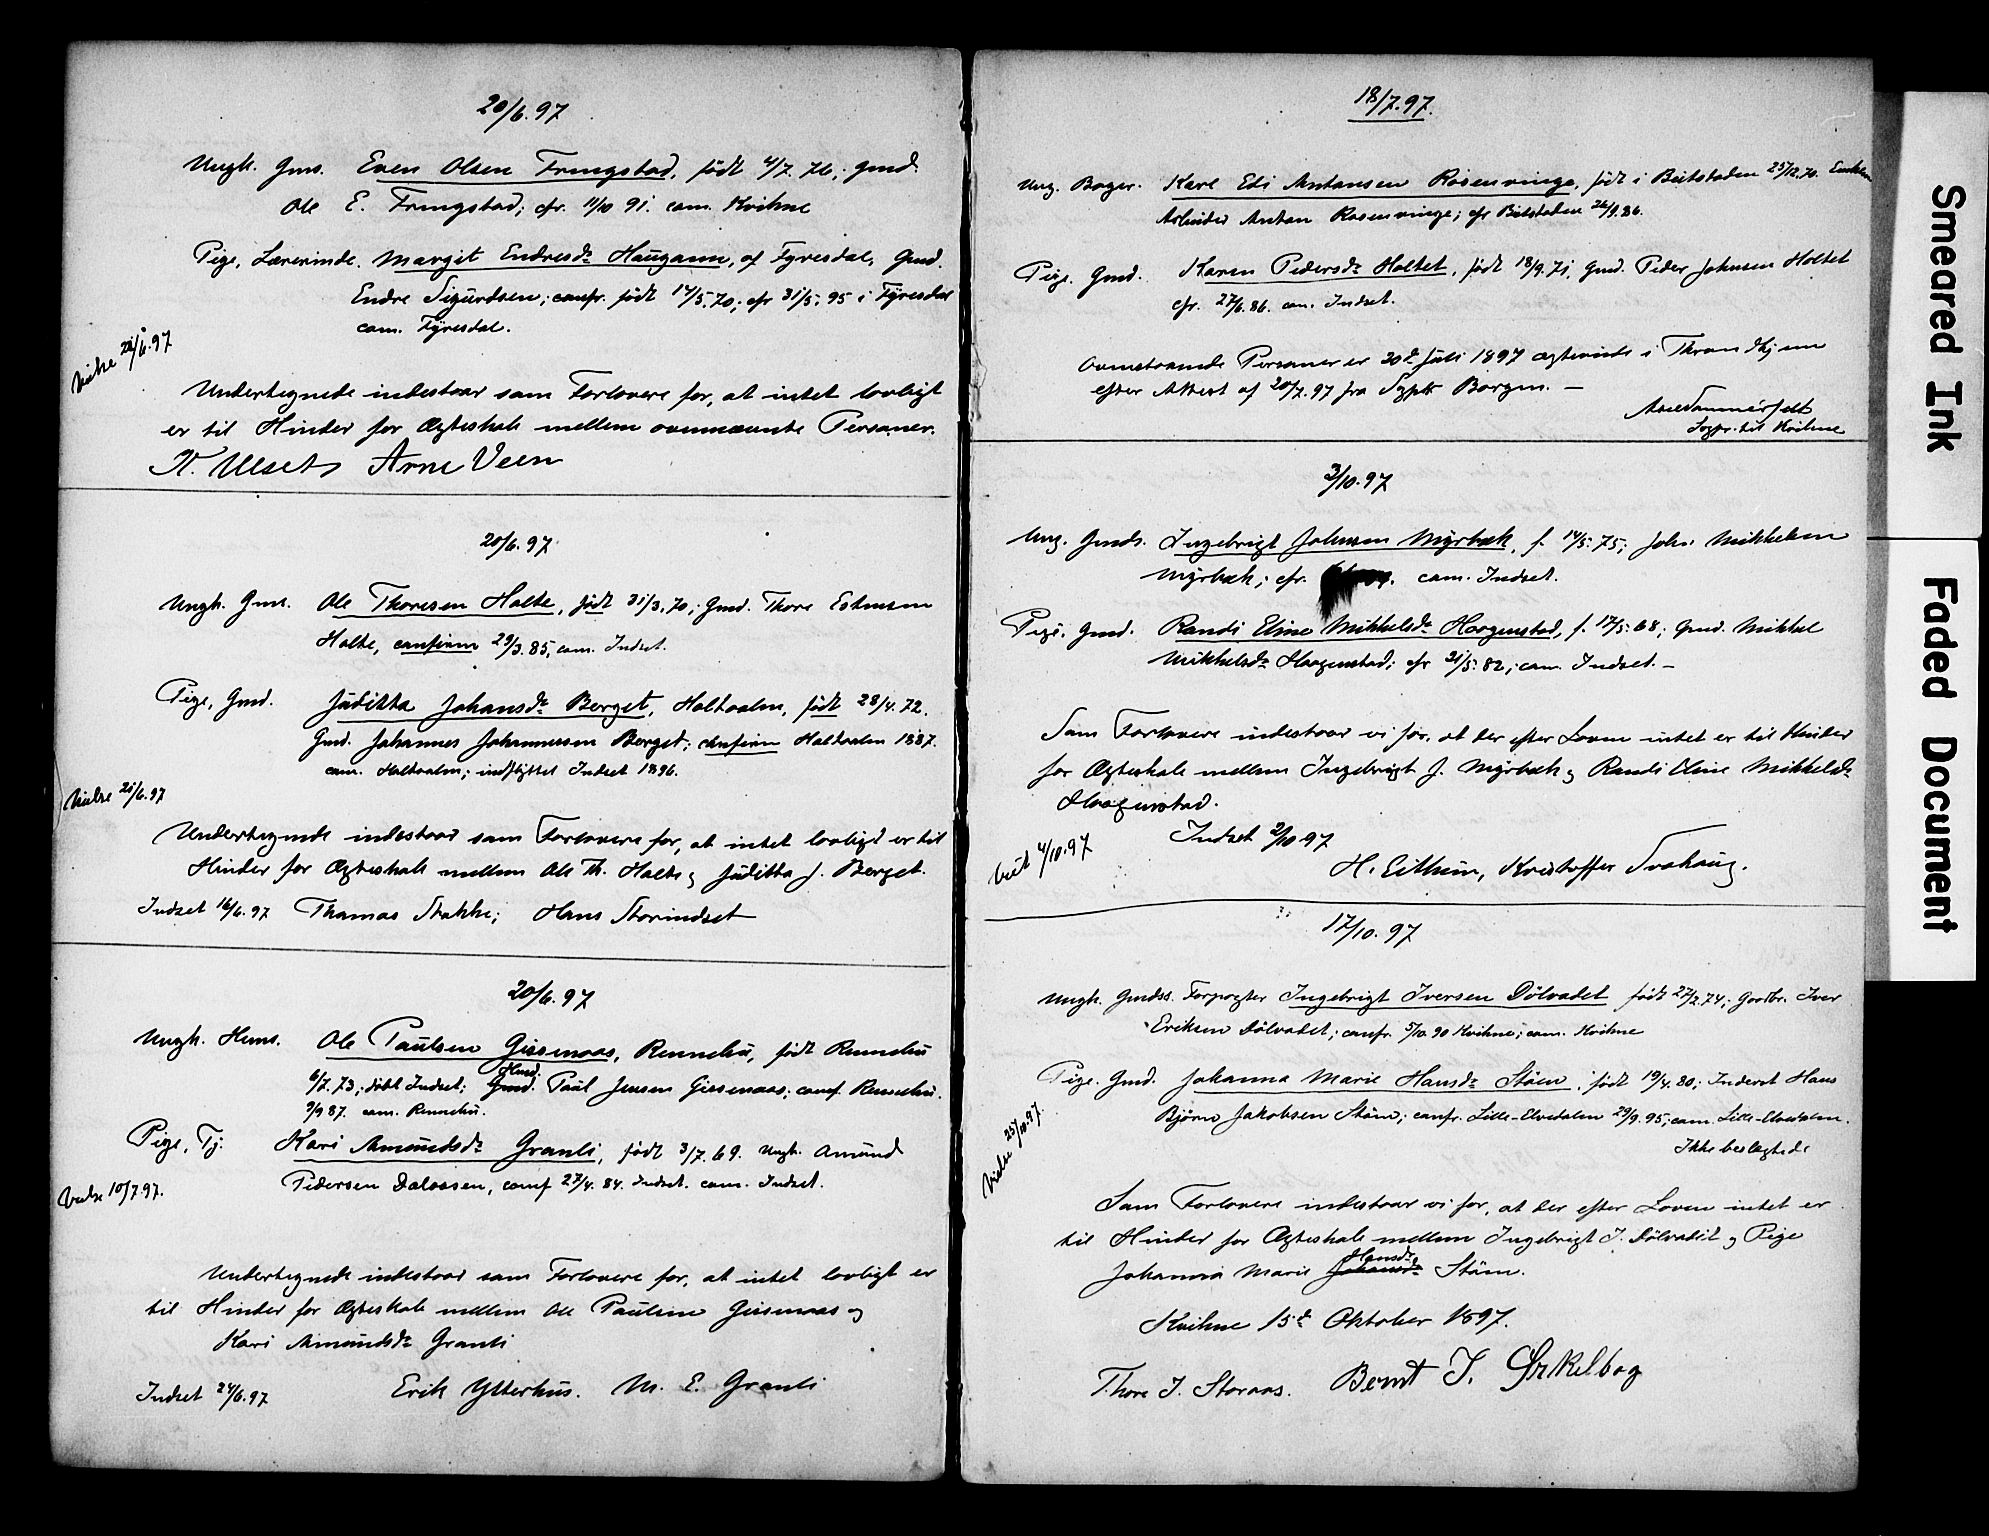 20/6.97
Ungk. Gms. Even Olsen Frengstad, født 4/7.76; Gmd.
Ole E. Frengstad; cfr. 11/10 91. com. Kvikne
Pige, Lærerinde. Margit Endresdr Haugann, af Fyresdal, Gmd.
Endre Sigurdsen; confr. født 14/5.70; cfr 31/5.95 i Fyresdal
com. Fyresdal.
Vielse 21/6.97
Undertegnede indestaar som Forlovere for, at intet lovligt
er til Hinder for Ægteskab mellem ovennævnte Personer.
K. Ulset Arne Veen
20/6.97
Ungk. Gms. Ole Thoresen Holte, født 31/3.70; Gmd. Thore Estensen
Holte, confirm 29/3.85, com. Indset.
Pige, Gmd. Juditta Johansdr Berget, Holtaalen, født 28/4.72.
Gmd. Johannes Johannessen Berget; confirm Holtaalen 1887.
com. Holtaalen; indflyttet Indset 1896.
Vielse 21/6.97
Undertegnede indestaar som Forlovere for, at intet lovligt er til
Hinder for Ægteskab mellem Ole Th. Holte og Juditta J. Berget.
Indset 16/6.97 Thomas Stakke; Hans Storindset
20/6.97
Ungk. Hsms. Ole Paulsen Gissenaas, Rennebu, født Rennebu
Hsmd.
6/7.73; døbt Indset; Gmd. Paul Jensen Gissenaas; conf. Rennebu.
9/9 87. com. Rennebu.
Pige, Tj. Kari Amundsdr Granli, født 3/7.69. Ungk. Amund
Pedersen Dalaasen, conf 27/4.84. Indset. com. Indset.
Vielse 10/7.97.
Undertegnede indestaar som Forlovere for, at intet lovligt er
til Hinder for Ægteskab mellem Ole Paulsen Gissenaas og
Kari Amundsdr Granli
Indset 24/6.97 Erik Ytterhus. M. E. Granli
18/7.97.
Ung. Bager. Karl Edi Antonsen Rosenvinge, født i Beitstaden 25/12.70.
Arbeider Anton Rosenvinge; cfr Beitstaden 26/9.86.
Pige. Gmd. Karen Pedersdr Holtet, født 18/9.71, Gmd. Peder Johnsen Holtet
cfr. 27/6.86. com. Indset.
Ovenstaaende Personer er 20de Juli 1897 ægteviede i Throndhjem
efter Attest af 20/7.97 fra Sgpr Borgen. —
Sogpr. til Kvikne
3/10.97
Ung. Gmds. Ingebrigt Johnsen Myrbæk, f. 14/5.75; John Mikkelsen
Myrbæk; cfr. com. Indset.
Pige. Gmd. Randi Eline Mikkelsdr Haagenstad, f. 17/5.68; Gmd. Mikkel
Mikkelsdr Haagenstad; cfr 31/5.82; com. Indset. —
Som Forlovere indestaar vi for, at der efter Loven intet er til Hinder
for Ægteskab mellem Ingebrigt J. Myrbæk og Randi Eline Mikkelsdr
Haagenstad.
Indset 2/10 97
Viet 4/10.97
H. Eithun, Kristoffer Svahaug.
17/10.97
Ungk. Gmdss. Forpagter Ingebrigt Iversen Dölvadet født 27/2.74; Gaardbr. Iver
Eriksen Dölvadet; confr. 5/10.90 Kvikne; com. Kvikne
Pige. Gmd. Johanna Marie Hansdr Stöen, født 19/4.80; Inderst Hans
Bjørn Jakobsen Stöen; confr. Lille-Elvedalen 29/9.95; com. Lille-Elvedalen.
Ikke beslægtede
Vielse 25/10.97.
Som Forlovere indestaar vi for, at der efter Loven intet er
til Hinder for Ægteskab mellem Ingebrigt I. Dölvadet og Pige
Hansdr
Johanna Marie Johansdr Stöen.
Kvikne 15de Oktober 1897.
Thore J. Storaas. Bernt I. Ørkelbog
Smeared Ink
Faded Document